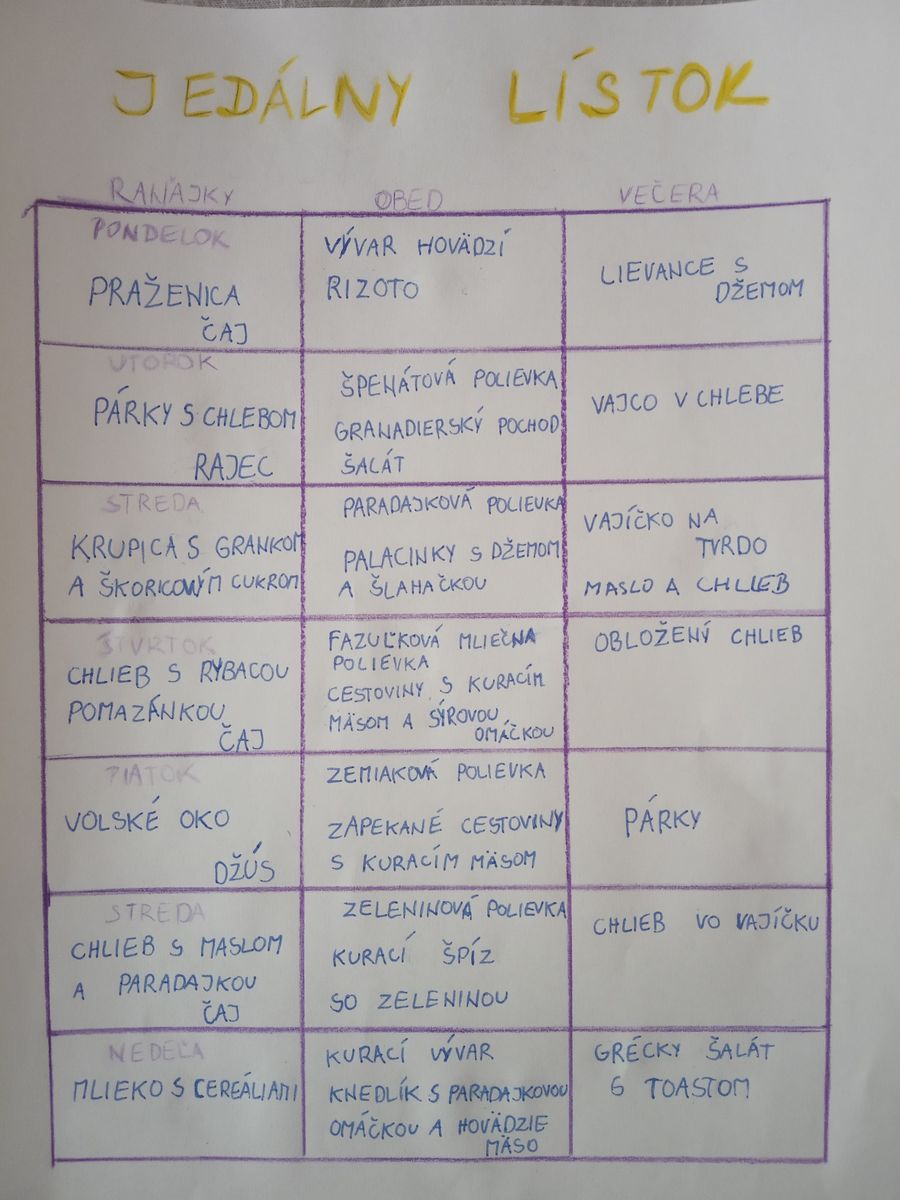 JEDÁLNY LÍSTOK
RAŇAJKY OBED VEČERA
PONDELOK
PRAŽENICA
ČAJ
VÝVAR HOVÄDZÍ
RIZOTO
LIEVANCE S
DŽEMOM
UTOROK
PÁRKY S CHLEBOM
RAJEC
ŠPENÁTOVÁ POLIEVKA
GRANADIERSKÝ POCHOD
ŠALÁT
VAJCO V CHLEBE
STREDA
KRUPICA S GRANKOM
A ŠKORICOVÝM CUKROM
PARADAJKOVÁ POLIEVKA
PALACINKY S DŽEMOM
A ŠLAHAČKOU
VAJÍČKO NA
TVRDO
MASLO A CHLIEB
ŠTVRTOK
CHLIEB S RYBACOU
POMAZÁNKOU
ČAJ
FAZUĽKOVÁ MLIEČNA
POLIEVKA
CESTOVINY S KURACÍM
MÄSOM A SÝROVOU
OMÁČKOU
OBLOŽENÝ CHLIEB
PIATOK
VOLSKÉ OKO
DŽÚS
ZEMIAKOVÁ POLIEVKA
ZAPEKANÉ CESTOVINY
S KURACÍM MÄSOM
PÁRKY
STREDA
CHLIEB S MASLOM
A PARADAJKOU
ČAJ
ZELENINOVÁ POLIEVKA
KURACÍ ŠPÍZ
SO ZELENINOU
CHLIEB VO VAJÍČKU
NEDEĽA
MLIEKO S CEREÁLIAMI
KURACÍ VÝVAR
KNEDLÍK S PARADAJKOVOU
OMÁČKOU A HOVÄDZIE
MÄSO
GRÉCKY ŠALÁT
S TOASTOM